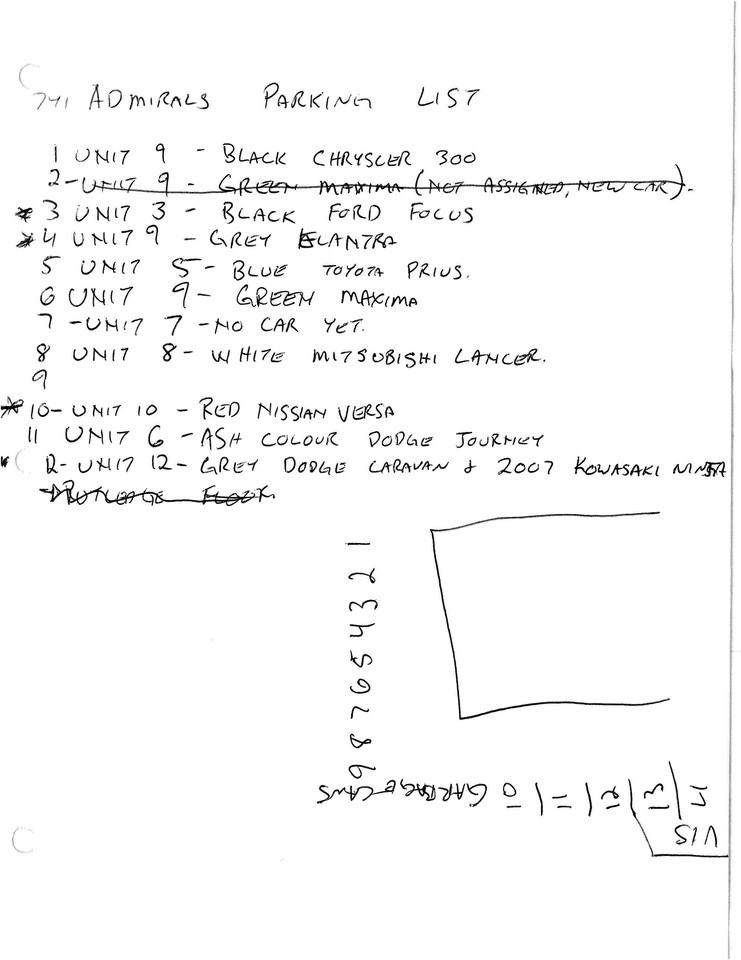 741 ADMIRALS PARKING LIST
1 UNIT 9 - BLACK CHRYSLER 300
2 - UNIT 9 - GREEN MAXIMA (NOT ASSIGNED, NEW CAR).
* 3 UNIT 3 - BLACK FORD FOCUS
* 4 UNIT 9 - GREY ELANTRA
5 UNIT 5 - BLUE TOYOTA PRIUS.
6 UNIT 9 - GREEN MAXIMA
7 - UNIT 7 - NO CAR YET.
8 UNIT 8 - WHITE MITSUBISHI LANCER.
9
* 10 - UNIT 10 - RED NISSIAN VERSA
11 UNIT 6 - ASH COLOUR DODGE JOURNEY
12 - UNIT 12 - GREY DODGE CARAVAN & 2007 KOWASAKI NINJA
1
2
3
4
5
6
7
8
9
GARBAGE CANS 10 11 12 13 14
VIS